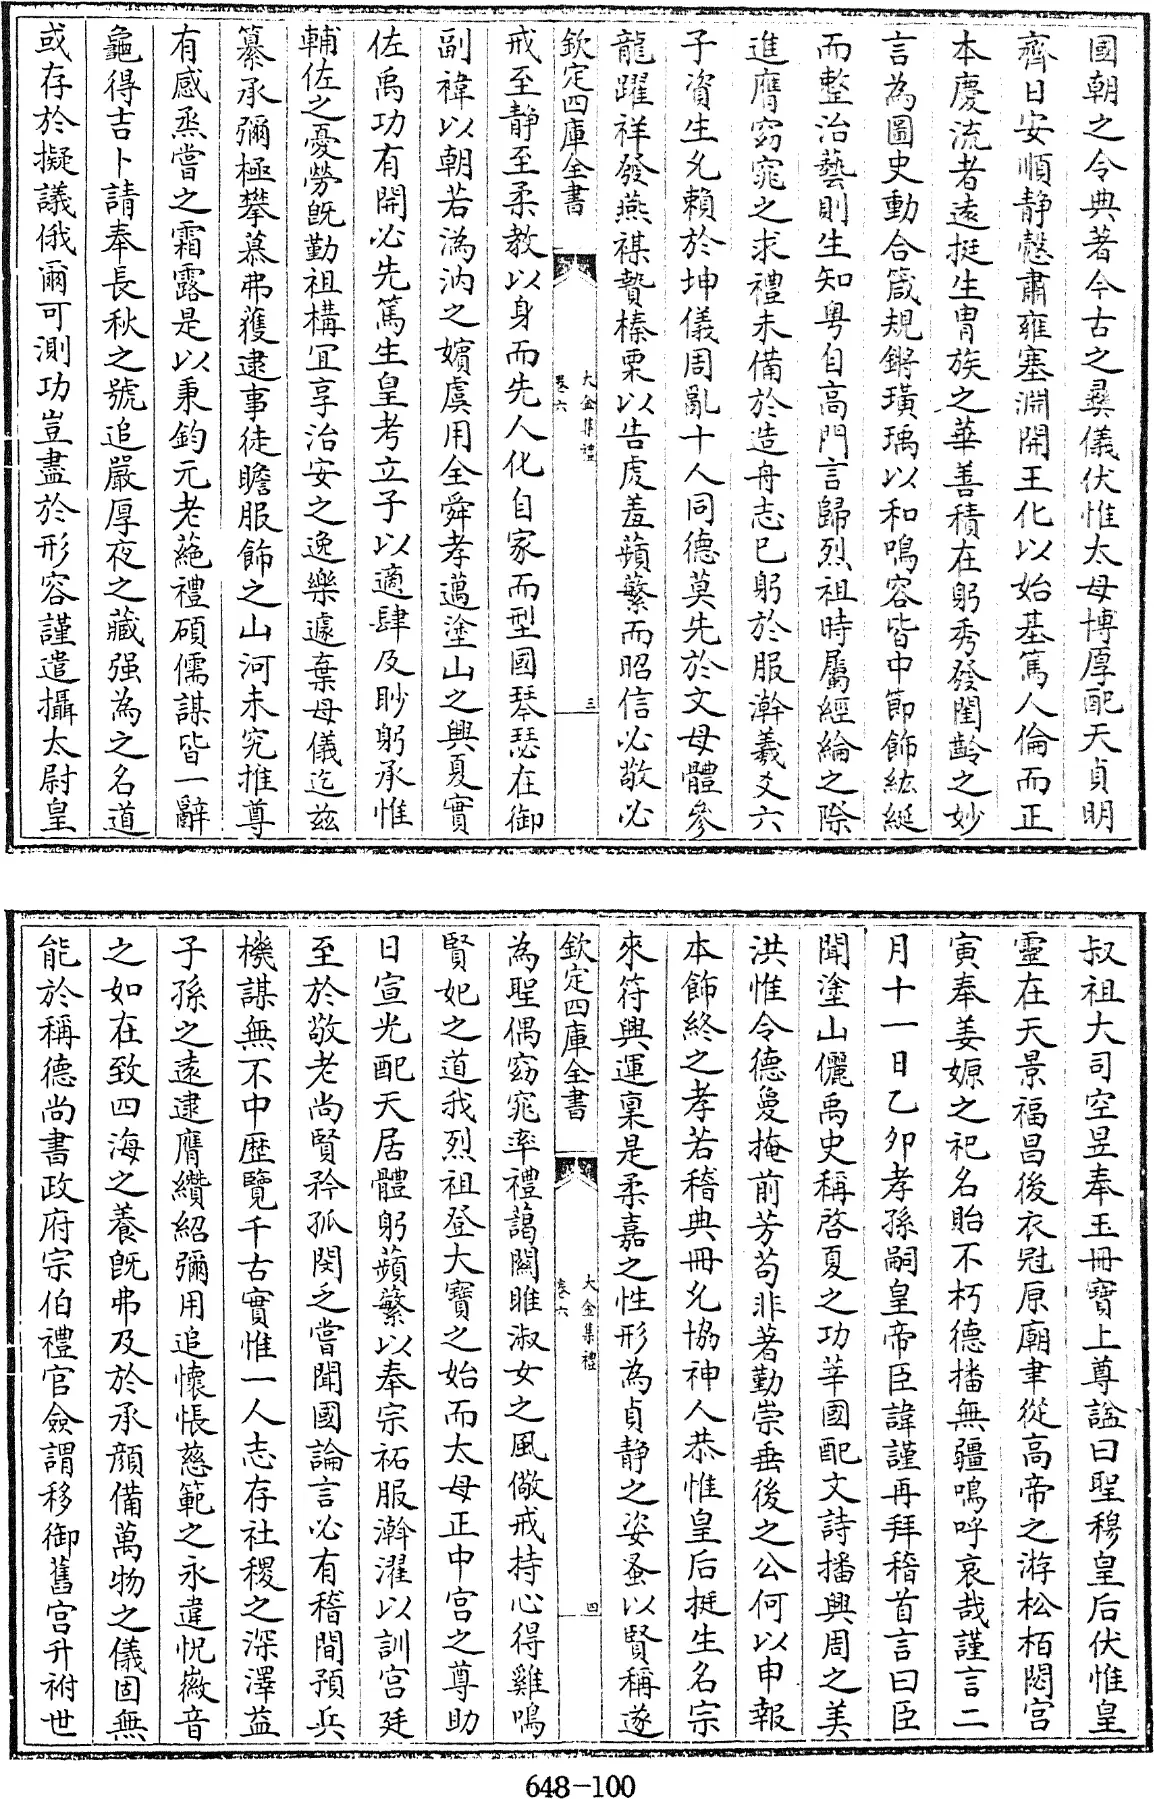 國朝之令典著今古之彞儀伏惟太母博厚配天貞明
齊日安順靜慤肅雍塞淵開王化以始基篤人倫而正
本慶流者遠挺生胄族之華善積在躬秀發閨齡之妙
言為圖史動合箴規鏘璜瑀以和鳴容皆中節飾紘綖
而整治藝則生知粤自高門言歸烈祖時屬經綸之際
進膺窈窕之求禮未備於造舟志已躬於服澣羲爻六
子資生允賴於坤儀周亂十人同德莫先於文母體參
龍躍祥發燕禖贄榛栗以告虔羞蘋蘩而昭信必敬必
欽定四庫全書
大金集禮
卷六
三
戒至靜至柔教以身而先人化自家而型國琴瑟在御
副褘以朝若溈汭之嬪虞用全舜孝邁塗山之興夏實
佐禹功有開必先篤生皇考立子以適肆及眇躬承惟
輔佐之憂勞既勤祖構宜享治安之逸樂遽棄母儀迄兹
纂承彌極攀慕弗獲逮事徒瞻服飾之山河未究推尊
有感烝嘗之霜露是以秉鈞元老蕝禮碩儒謀皆一辭
龜得吉卜請奉長秋之號追嚴厚夜之藏强為之名道
或存於擬議俄爾可測功豈盡於形容謹遣攝太尉皇
叔祖大司空昱奉玉冊寶上尊諡曰聖穆皇后伏惟皇
靈在天景福昌後衣冠原廟聿從高帝之游松栢閟宫
寅奉姜嫄之祀名貽不朽德播無疆嗚呼哀哉謹言二
月十一日乙卯孝孫嗣皇帝臣諱謹再拜稽首言曰臣
聞塗山儷禹史稱啓夏之功莘國配文詩播興周之美
洪惟令德敻掩前芳苟非著勤崇垂後之公何以申報
本飾終之孝若稽典冊允協神人恭惟皇后挺生名宗
來符興運稟是柔嘉之性形為貞靜之姿蚤以賢稱遂
欽定四庫全書
大金集禮
卷六
四
為聖偶窈窕率禮藹關雎淑女之風儆戒持心得雞鳴
賢妃之道我烈祖登大寶之始而太母正中宫之尊助
日宣光配天居體躬蘋蘩以奉宗祏服澣濯以訓宫廷
至於敬老尚賢矜孤閔之嘗聞國論言必有稽間預兵
機謀無不中歴覽千古實惟一人志存社稷之深澤益
子孫之遠逮膺纘紹彌用追懷悵慈範之永違怳徽音
之如在致四海之養既弗及於承顔備萬物之儀固無
能於稱德尚書政府宗伯禮官僉謂移御舊宫升祔世
648-100